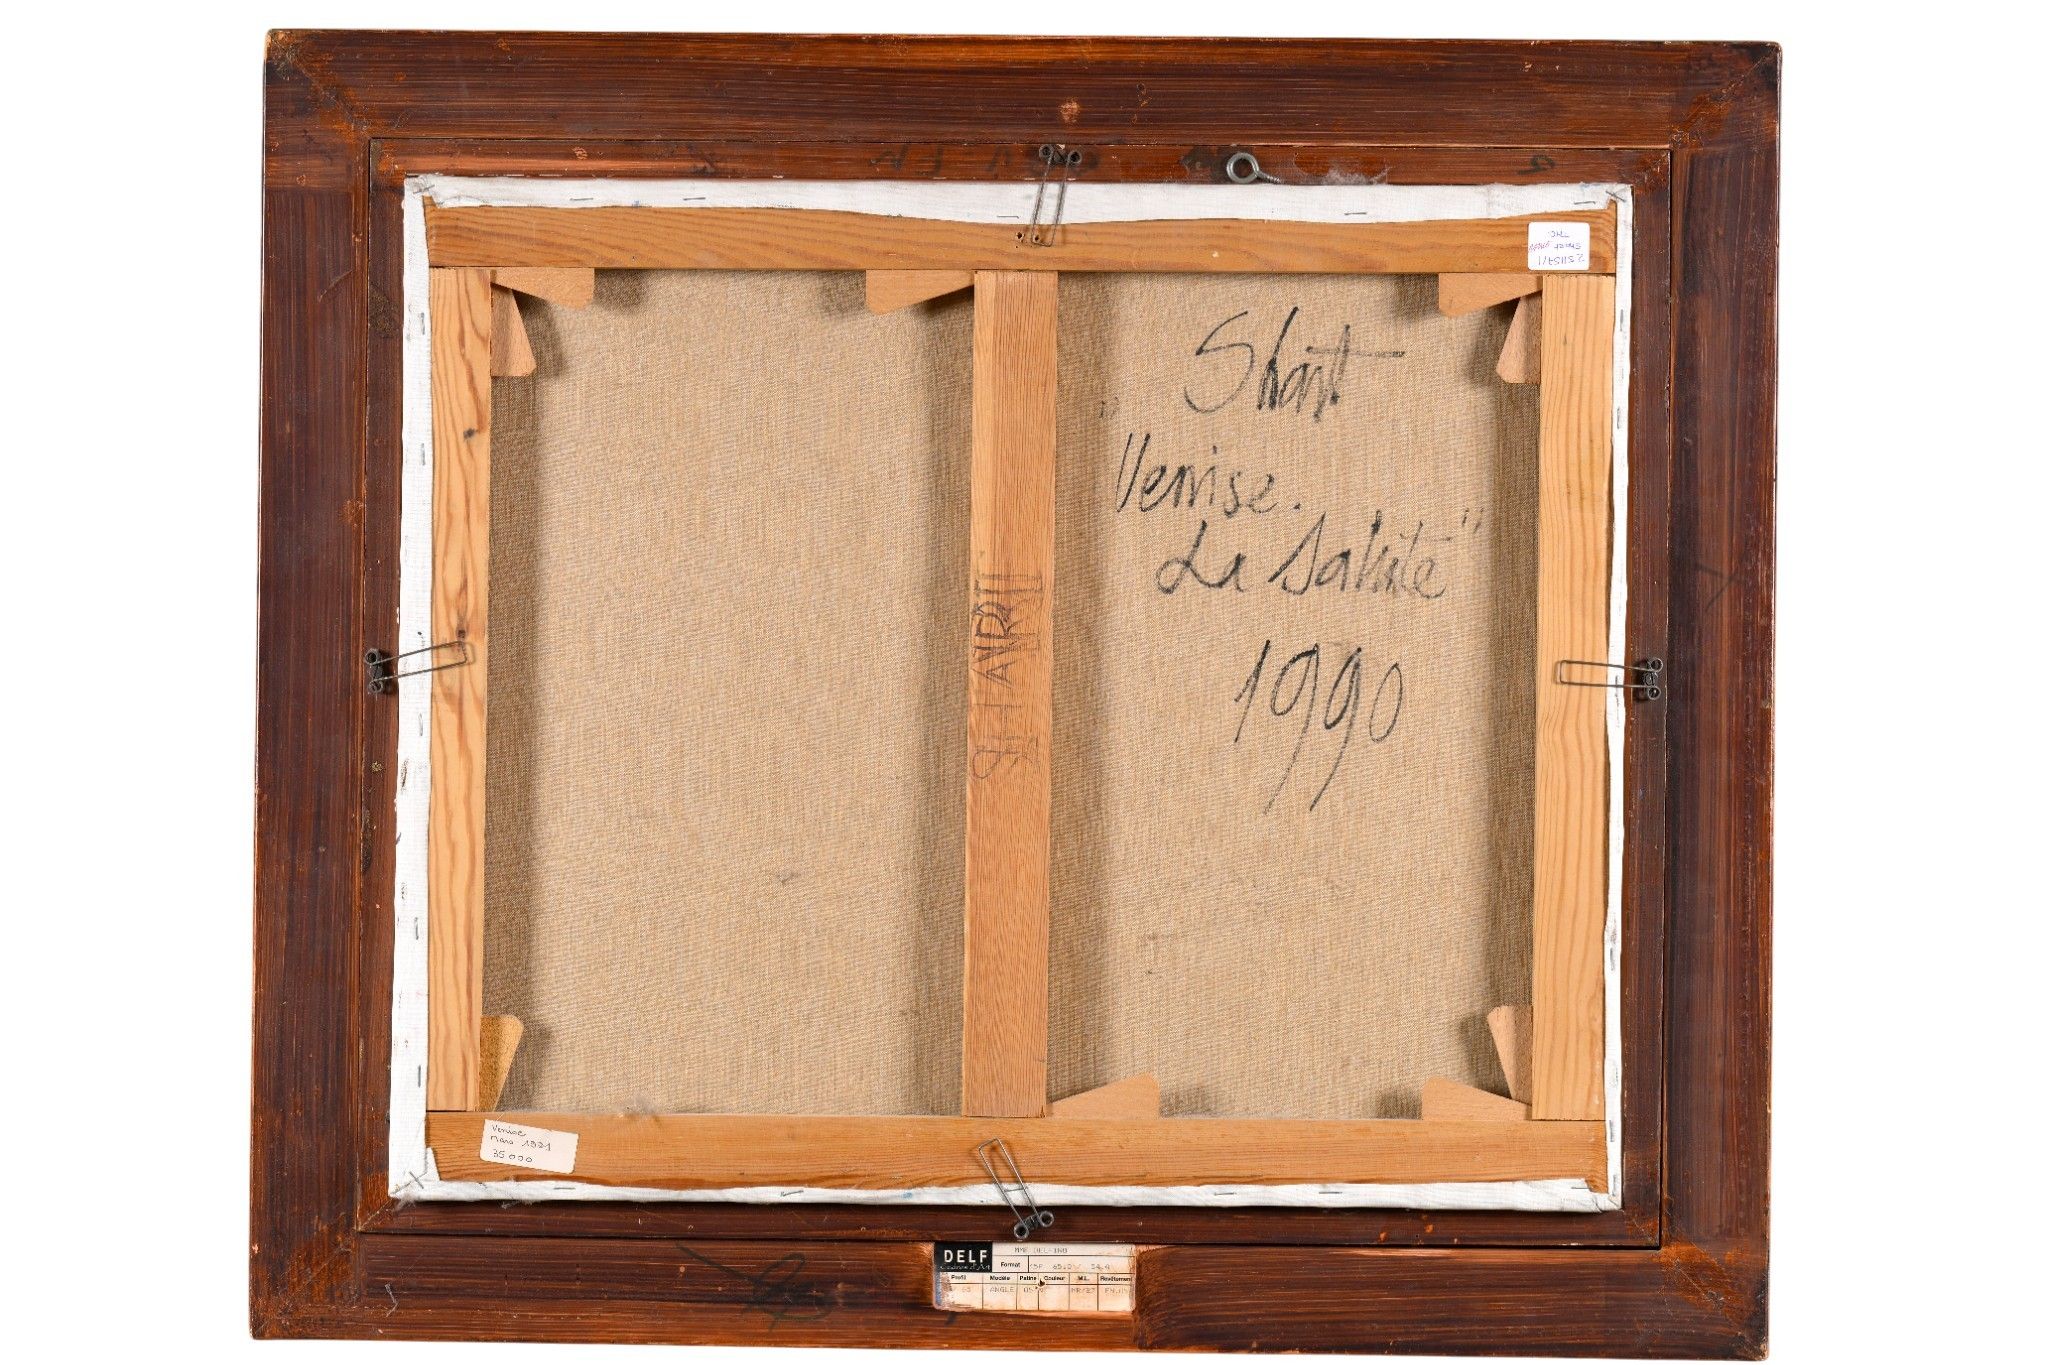 Shart
"Venise.
La Salute"
1990
SHART
251157/1
Venise
Mars 1991
35 000
DELF
MME DEL-INO
Format
Profil Modèle Patine Couleur M.L. Revêtement
ANGLE